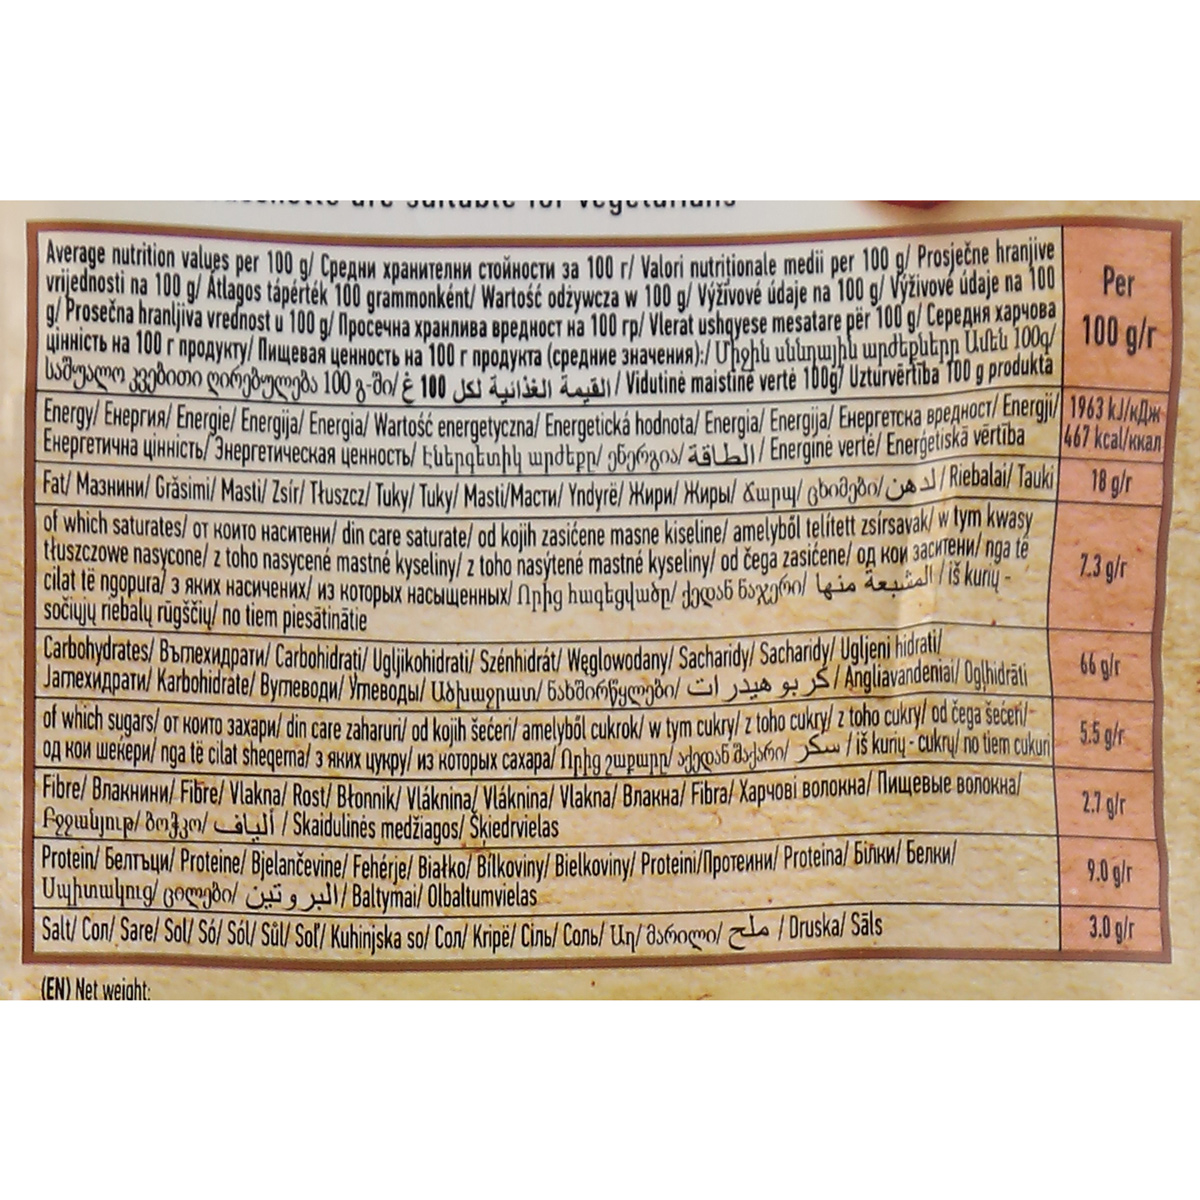 are suitable for vegetarians
Average nutrition values per 100 g/ Средни хранителни стойности за 100 г/ Valori nutriționale medii per 100 g/ Prosječne hranjive
vrijednosti na 100 g/ Átlagos tápérték 100 grammonként/ Wartość odżywcza w 100 g/ Výživové údaje na 100 g/ Výživové údaje na 100
g/ Prosečna hranljiva vrednost u 100 g/ Просечна хранлива вредност на 100 гр/ Vlerat ushqyese mesatare për 100 g/ Середня харчова
цінність на 100 г продукту/ Пищевая ценность на 100 г продукта (средние значения):/ Միջին սննդային արժեքները Ամեն 100գ/
საშუალო კვებითი ღირებულება 100 გ-ში/ القيمة الغذائية لكل 100 غ / Vidutinė maistinė vertė 100g/ Uzturvērtība 100 g produkta
Per
100 g/г
Energy/ Енергия/ Energie/ Energija/ Energia/ Wartość energetyczna/ Energetická hodnota/ Energia/ Energija/ Енергетска вредност/ Energji/
Енергетична цінність/ Энергетическая ценность/ Էներգետիկ արժեք/ ენერგია/ الطاقة / Energinė vertė/ Enerģetiskā vērtība
1963 kJ/кДж
467 kcal/ккал
Fat/ Мазнини/ Grăsimi/ Masti/ Zsír/ Tłuszcz/ Tuky/ Tuky/ Masti/Масти/ Yndyrë/ Жири/ Жиры/ Ճարպ/ ცხიმები/ لدهن / Riebalai/ Tauki
18 g/г
of which saturates/ от които наситени/ din care saturate/ od kojih zasićene masne kiseline/ amelyből telített zsírsavak/ w tym kwasy
tłuszczowe nasycone/ z toho nasycené mastné kyseliny/ z toho nasýtené mastné kyseliny/ od čega zasićene/ од кои заситени/ nga të
cilat të ngopura/ з яких насичених/ из которых насыщенных/ Որից հագեցվածը/ ქედან ნაჯერი/ المشبعة منها / iš kurių -
sočiųjų riebalų rūgščių/ no tiem piesātinātie
7.3 g/г
Carbohydrates/ Въглехидрати/ Carbohidrati/ Ugljikohidrati/ Szénhidrát/ Węglowodany/ Sacharidy/ Sacharidy/ Ugljeni hidrati/
Јаглехидрати/ Karbohidrate/ Вуглеводи/ Углеводы/ Ածխաջրատ/ ნახშირწყლები/ كربو هيدر ات / Angliavandeniai/ Ogļhidrāti
66 g/г
of which sugars/ от които захари/ din care zaharuri/ od kojih šećeri/ amelyből cukrok/ w tym cukry/ z toho cukry/ z toho cukry/ od čega šećeri/
од кои шеќери/ nga të cilat sheqerna/ з яких цукру/ из которых сахара/ Որից շաքարը/ აქედან შაქარი/ سكر / iš kurių - cukrų/ no tiem cukuri
5.5 g/г
Fibre/ Влакнини/ Fibre/ Vlakna/ Rost/ Błonnik/ Vláknina/ Vláknina/ Vlakna/ Влакна/ Fibra/ Харчові волокна/ Пищевые волокна/
Բջջանյութ/ ბოჭკო/ ألياف / Skaidulinės medžiagos/ Šķiedrvielas
2.7 g/г
Protein/ Белтъци/ Proteine/ Bjelančevine/ Fehérje/ Białko/ Bílkoviny/ Bielkoviny/ Proteini/Протеини/ Proteina/ Білки/ Белки/
Սպիտակուց/ ცილები/ البر و تين / Baltymai/ Olbaltumvielas
9.0 g/г
Salt/ Сол/ Sare/ Sol/ Só/ Sól/ Sůl/ Soľ/ Kuhinjska so/ Сол/ Kripë/ Сіль/ Соль/ Աղ/ მარილი/ ملح / Druska/ Sāls
3.0 g/г
(EN) Net weight: